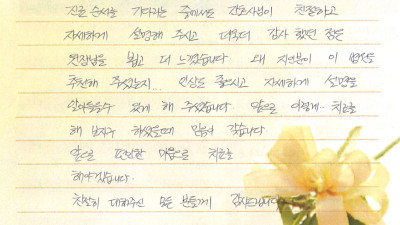 진료 순서를 기다리는 중에서도 간호사님이 친절하고
자세하게 설명해 주시고 더욱더 감사 했던 점은
원장님을 뵙고 더 느꼈습니다. 왜 지인분이 이 병원을
추천해 주셨는지... 인상을 좋으시고 자세하게 설명을
알아들을수 있게 해 주셨습니다 앞으로 이렇게.. 치료를
해 보자구 하셨을때 믿음이 갔습니다.
앞으로 편안한 마음으로 치료를
해야겠습니다.
친절히 대해주신 모든 분들께 감사드립니다